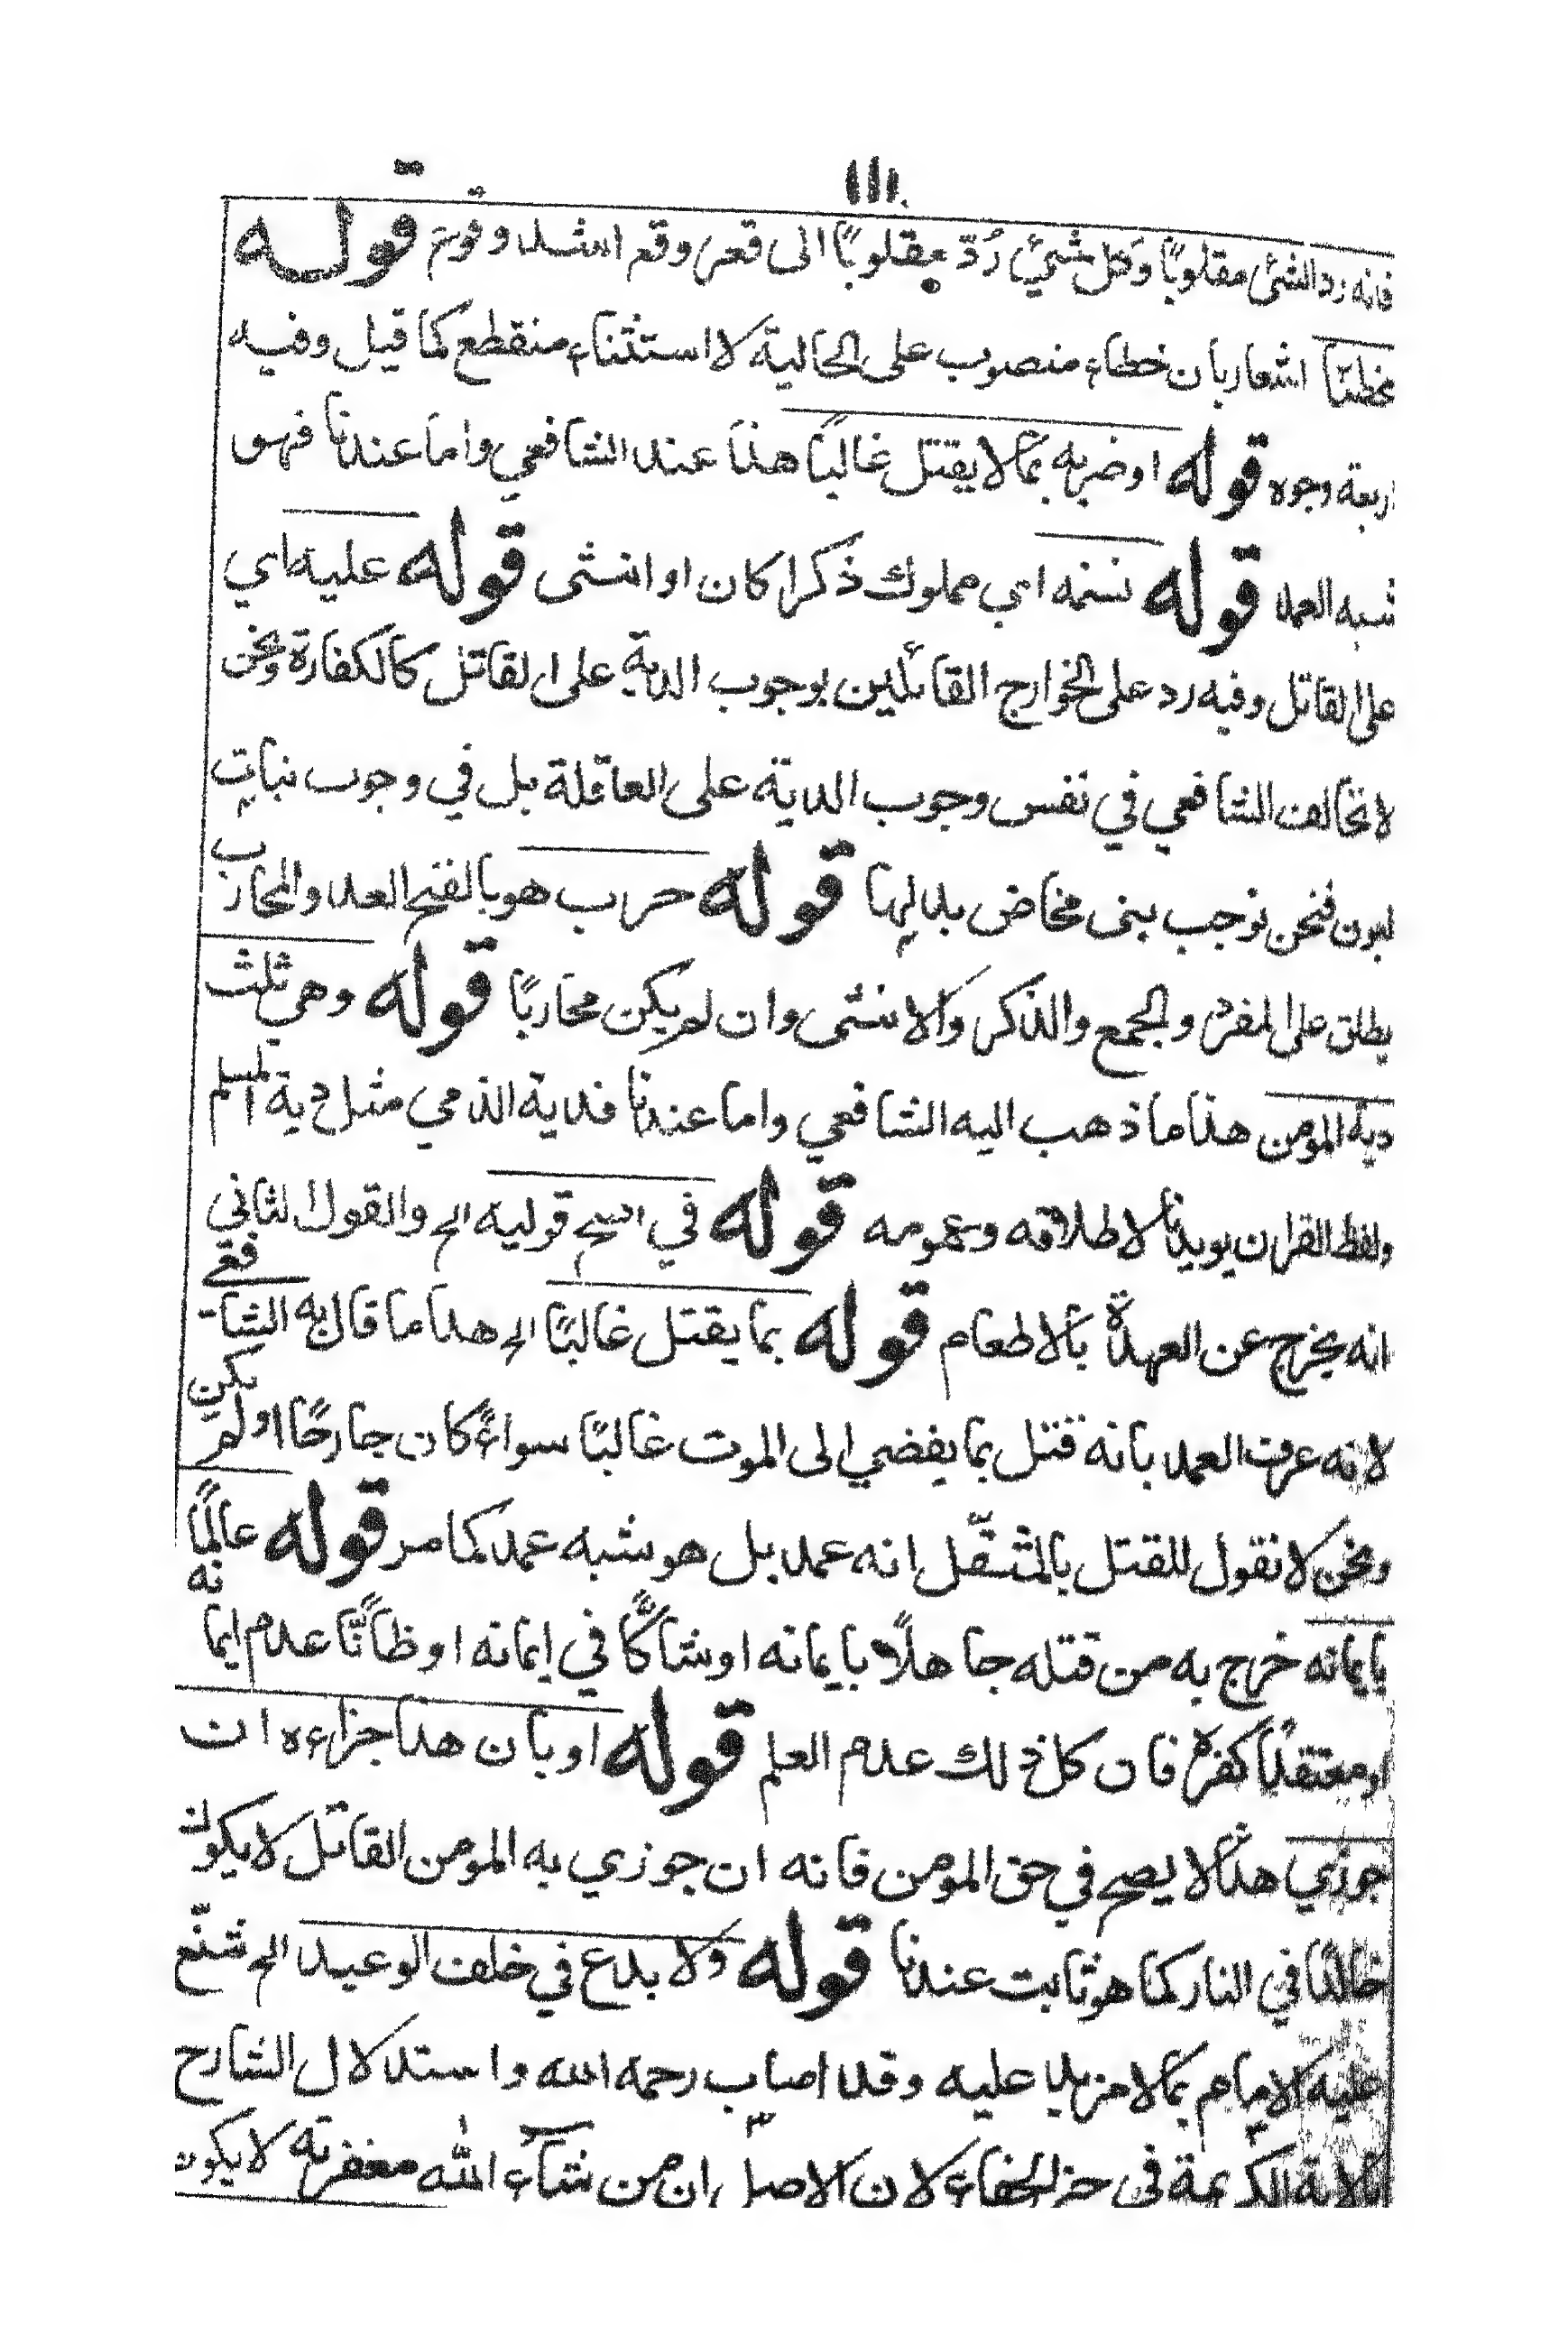 ١١١
فانه رد الشئ مقلوبًا وكل شيئ رُدّ مقلوبًا الى قعره وقع اشد وقوع قوله
مخطئا اشعار بان خطاء منصوب على الحالية لا استثناء منقطع كما قيل وفيه
اربعة وجوه قوله او ضربه بما لا يقتل غالبًا هذا عند الشافعي واما عندنا فهو
شبه العمد قوله نسمه اي مملوك ذكرا كان او انثى قوله عليه اي
على القاتل وفيه رد على الخوارج القائلين بوجوب الدية على القاتل كالكفارة ونحن
لا نخالف الشافعي في نفس وجوب الدية على العاقلة بل في وجوب نبات
لبون فنحن نوجب بنى مخاض بدلها قوله حرب هو بالفتح العدو والمحارب
يطلق على المفرد والجمع والذكر والانثى وان لم يكن محاربًا قوله وهي ثلث
دية المومن هذا ما ذهب اليه الشافعي واما عندنا فدية الذمي مثل دية المسلم
ولفظ القران يويدنا لاطلاقه وعمومه قوله في اصح قوليه الح والقول الثاني
انه يخرج عن العهدة بالاطعام قوله بما يقتل غالبًا الح هذا ما قال به الشافعي
لانه عرف العمد بانه قتل بما يفضي الى الموت غالبًا سواءً كان جارحًا اولم يكن
ونحن لا نقول للقتل بالمثقّل انه عمد بل هو شبه عمد كما مر قوله عالمًا
بايمانه خرج به من قتله جاهلًا بايمانه او شاكًّا في ايمانه او ظانًّا عدم ايمانه
او معتقدًا كفره فان كل ذلك عدم العلم قوله او بان هذا جزاءه ان
جوزي هذا لا يصح في حق المومن فانه ان جوزي به المومن القاتل لا يكون
خالدًا في النار كما هو ثابت عندنا قوله ولا بدع في خلف الوعيد الح شنّع
عليه الامام بما لا مزيد عليه وقد اصاب رحمه الله واستدلال الشارح
بالاية الكريمة في حيز الخفاء لان الاصل ان من شاء الله مغفرته لا يكون